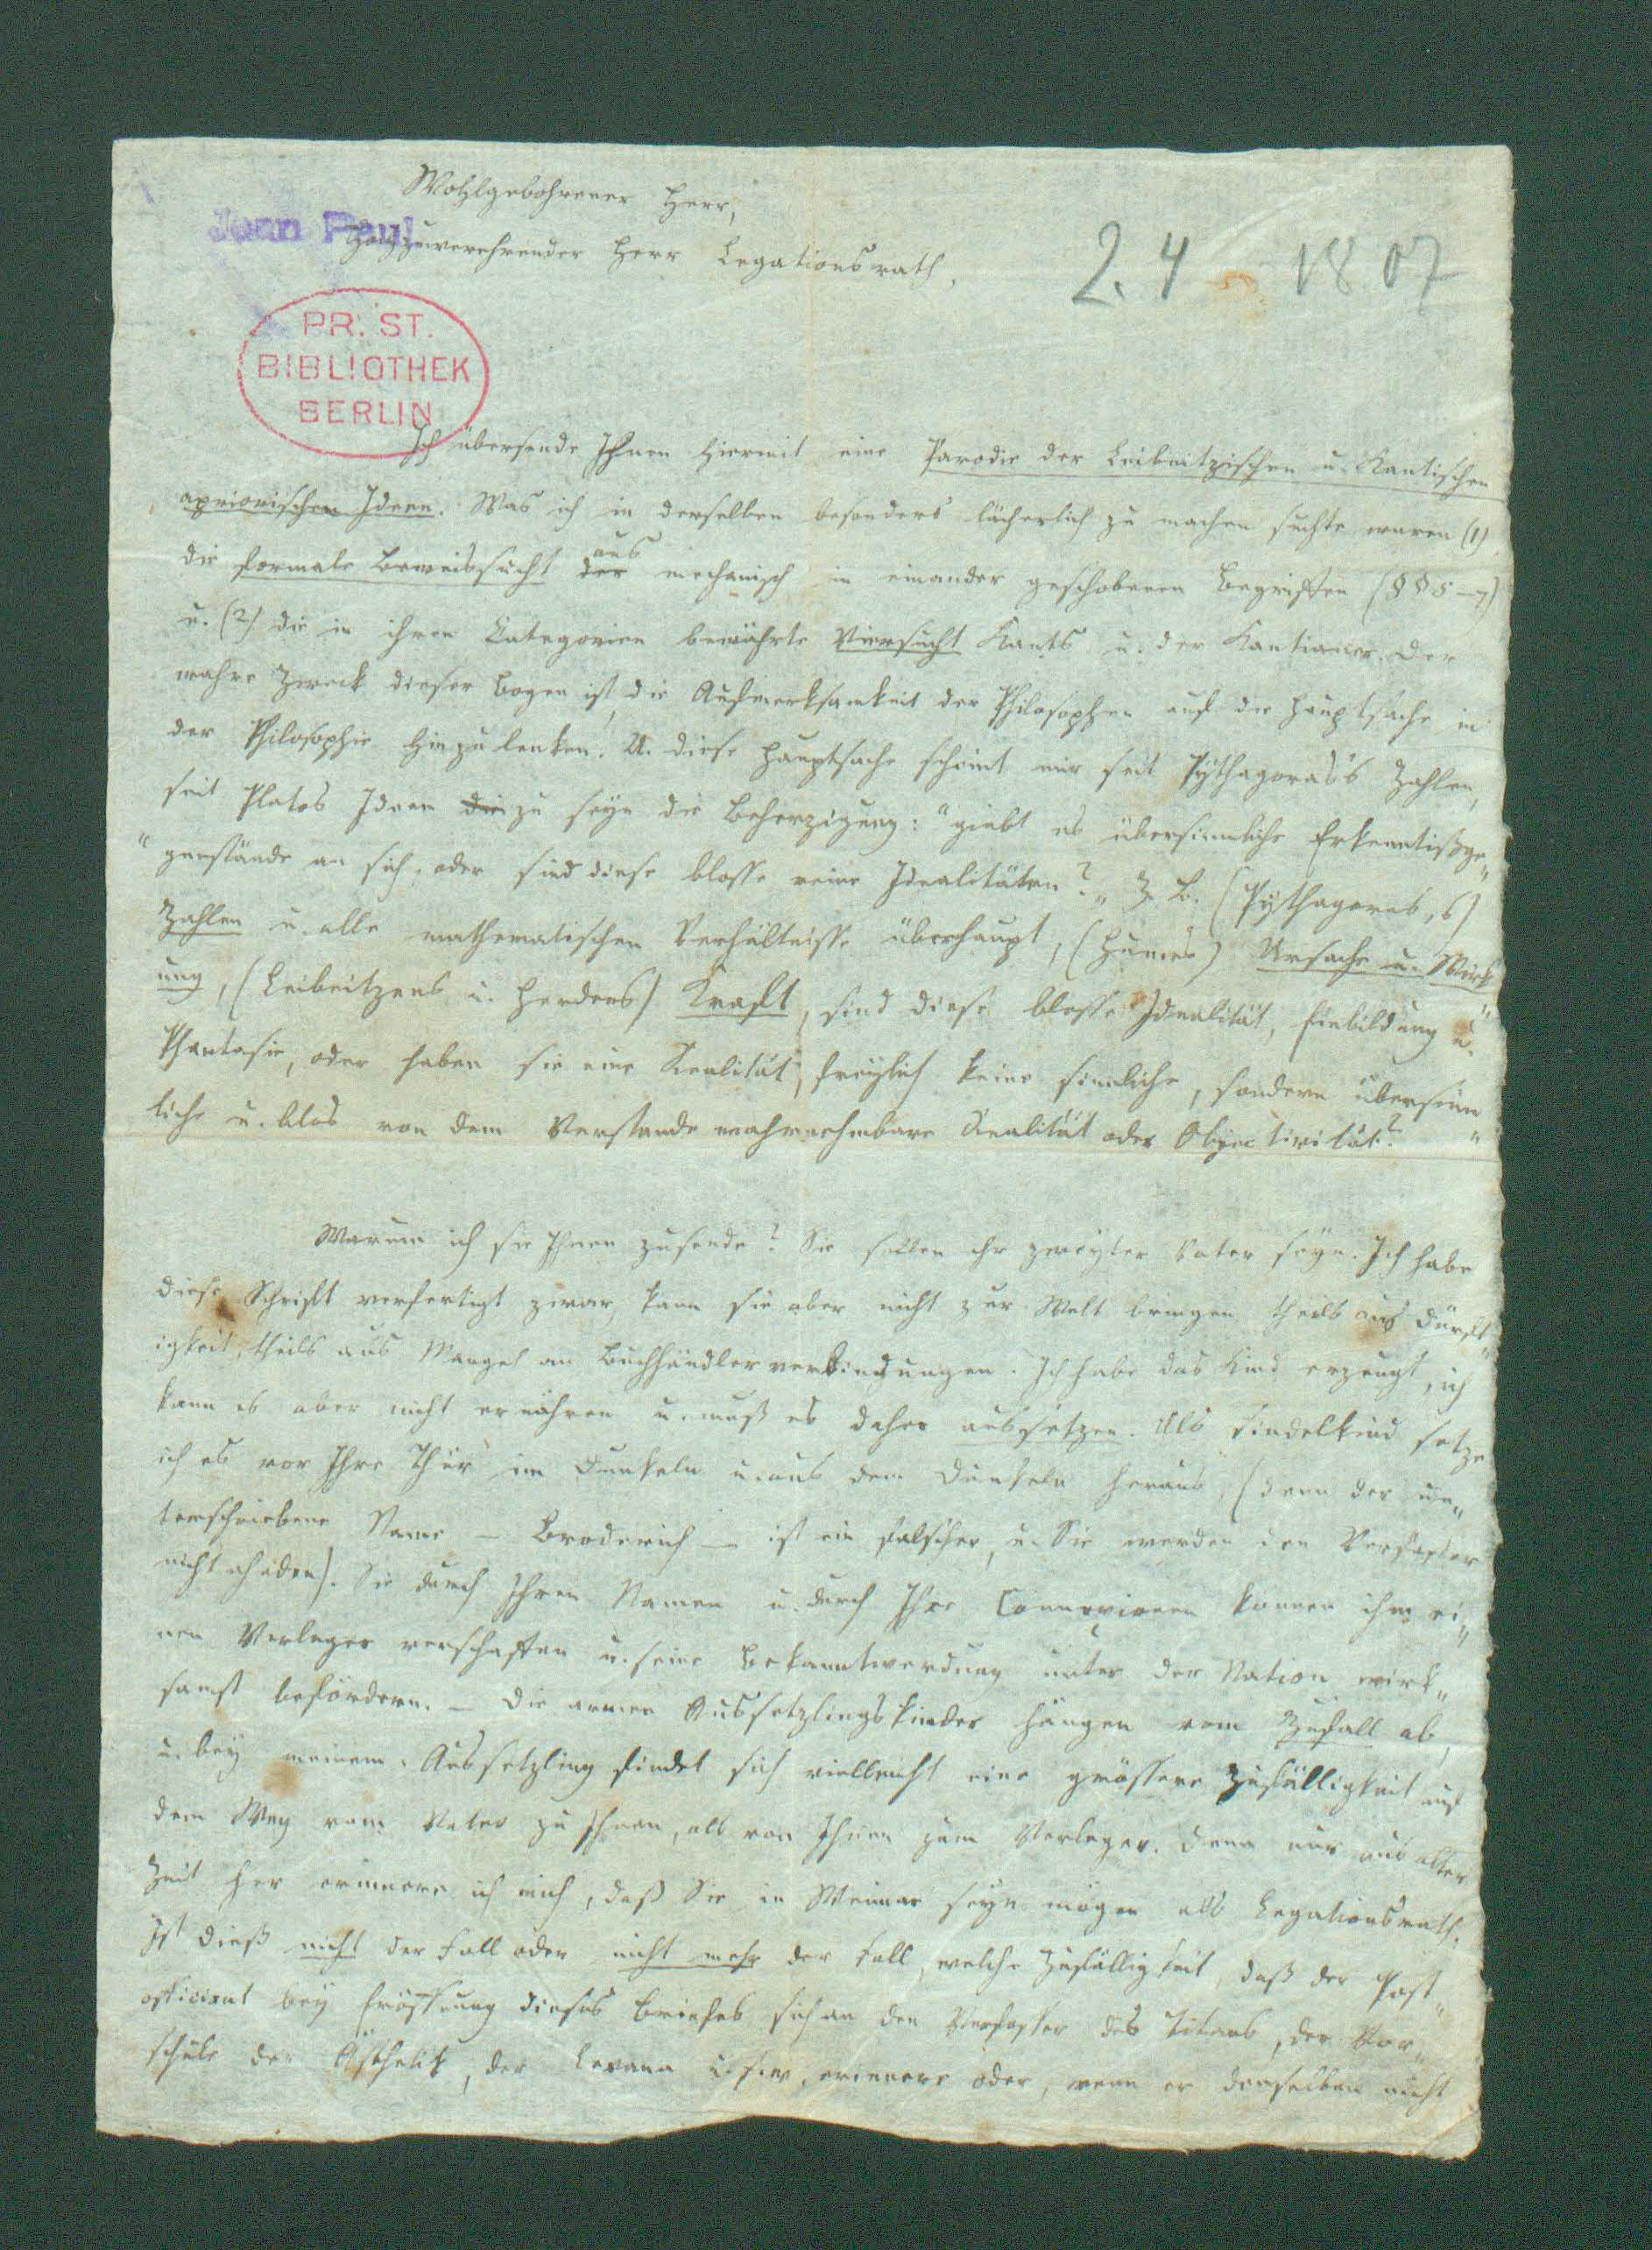 Wohlgebohrener Herr,
Jean Paul
Hochzuverehrender Herr Legationsrath.
2. 4 1807
PR. ST.
BIBLIOTHEK
BERLIN
Ich übersende Ihnen hiermit eine Parodie der Leibnitzischen u. Kantischen
apriorischen Ideen. Was ich in derselben besonders lächerlich zu machen suchte waren (1)
die formale Beweissucht der aus mechanisch in einander geschobenen Begriffen (§§ 5-7)
u. (2) die in ihren Categorien bewährte Viersucht Kants u. der Kantianer. Der
wahre Zweck dieser Bogen ist, die Aufmerksamkeit der Philosophen auf die Hauptsache in
der Philosophie hinzulenken. U. diese Hauptsache scheint mir seit Pythagoras's Zahlen,
seit Platos Ideen die zu seyn die Beherzigung: "giebt es übersinnliche Erkenntißge„
"genstände an sich, oder sind diese blosse reine Idealitäten?„ Z. B. (Pythagoras,s)
Zahlen u. alle mathematischen Verhältnisse überhaupt, (Humes) Ursache u. Wirk„
ung, (Leibnitzens u. Herders) Kraft, sind diese blosse Idealität, Einbildung u.
Phantasie, oder haben sie eine Realität, freylich keine sinnliche, sondern übersinn„
liche u. blos von dem Verstande wahrnehmbare Realität oder Objectivität?
Warum ich sie Ihnen zusende? Sie sollen ihr zweyter Vater seyn. Ich habe
diese Schrift verfertigt zwar, kann sie aber nicht zur Welt bringen theils aus Dürft„
igkeit, theils aus Mangel an Buchhändlerverbindungen. Ich habe das Kind erzeugt, ich
kann es aber nicht ernähren u. muß es daher aussetzen. Als Findelkind setze
ich es vor Ihre Thür im Dunkeln u. aus dem Dunkeln heraus, (denn der un„
terschriebene Name - Broderich - ist ein falscher, u. Sie werden den Verfasser
nicht ahnden). Sie durch Ihren Namen u. durch Ihre Connexionen können ihm ei„
nen Verleger verschaffen u. seine Bekanntwerdung unter der Nation wirk„
samst befördern. - Die armen Aussetzlingskinder hängen vom Zufall ab,
u. bey meinem Aussetzling findet sich vielleicht eine grössere Zufälligkeit auf
dem Weg vom Vater zu Ihnen, als von Ihnen zum Verleger. Denn nur aus alter
Zeit her erinnere ich mich, daß Sie in Weimar seyn mögen als Legationsrath.
Ist dieß nicht der Fall oder nicht mehr der Fall, welche Zufälligkeit, daß der Post„
officiant bey Eröffnung dieses Briefes sich an den Verfasser des Titans, der Vor„
schule der Ästhetik, der Levana u.s.w. erinnere oder, wenn er denselben nicht